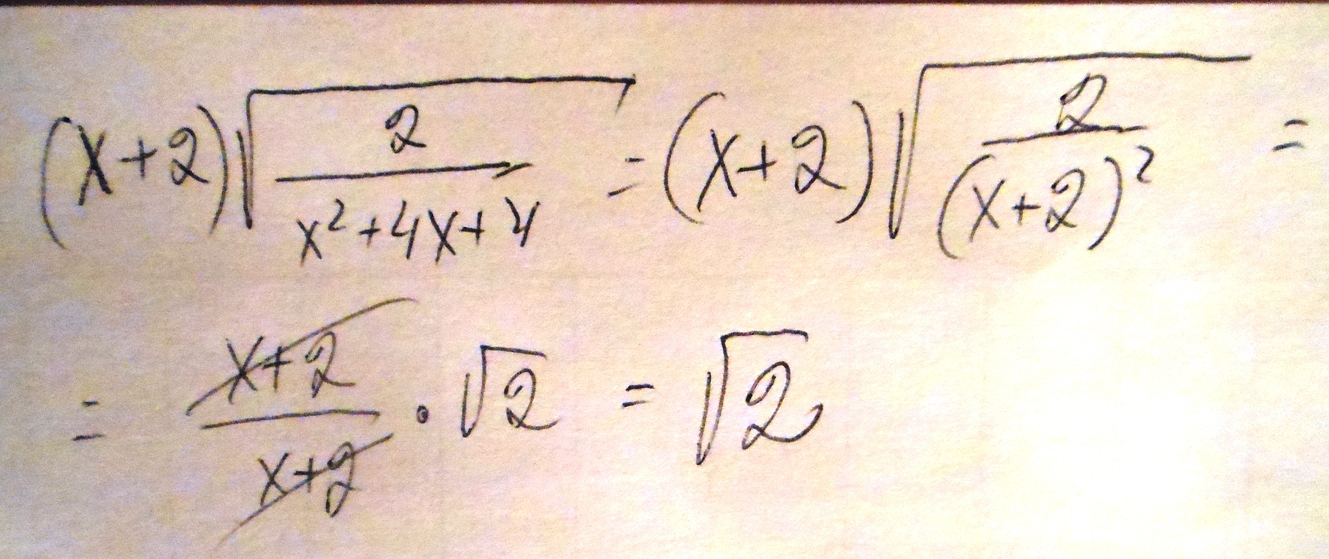 (x+2)√(2/(x²+4x+4)) = (x+2)√(2/(x+2)²) =
= (x+2)/(x+2) · √2 = √2